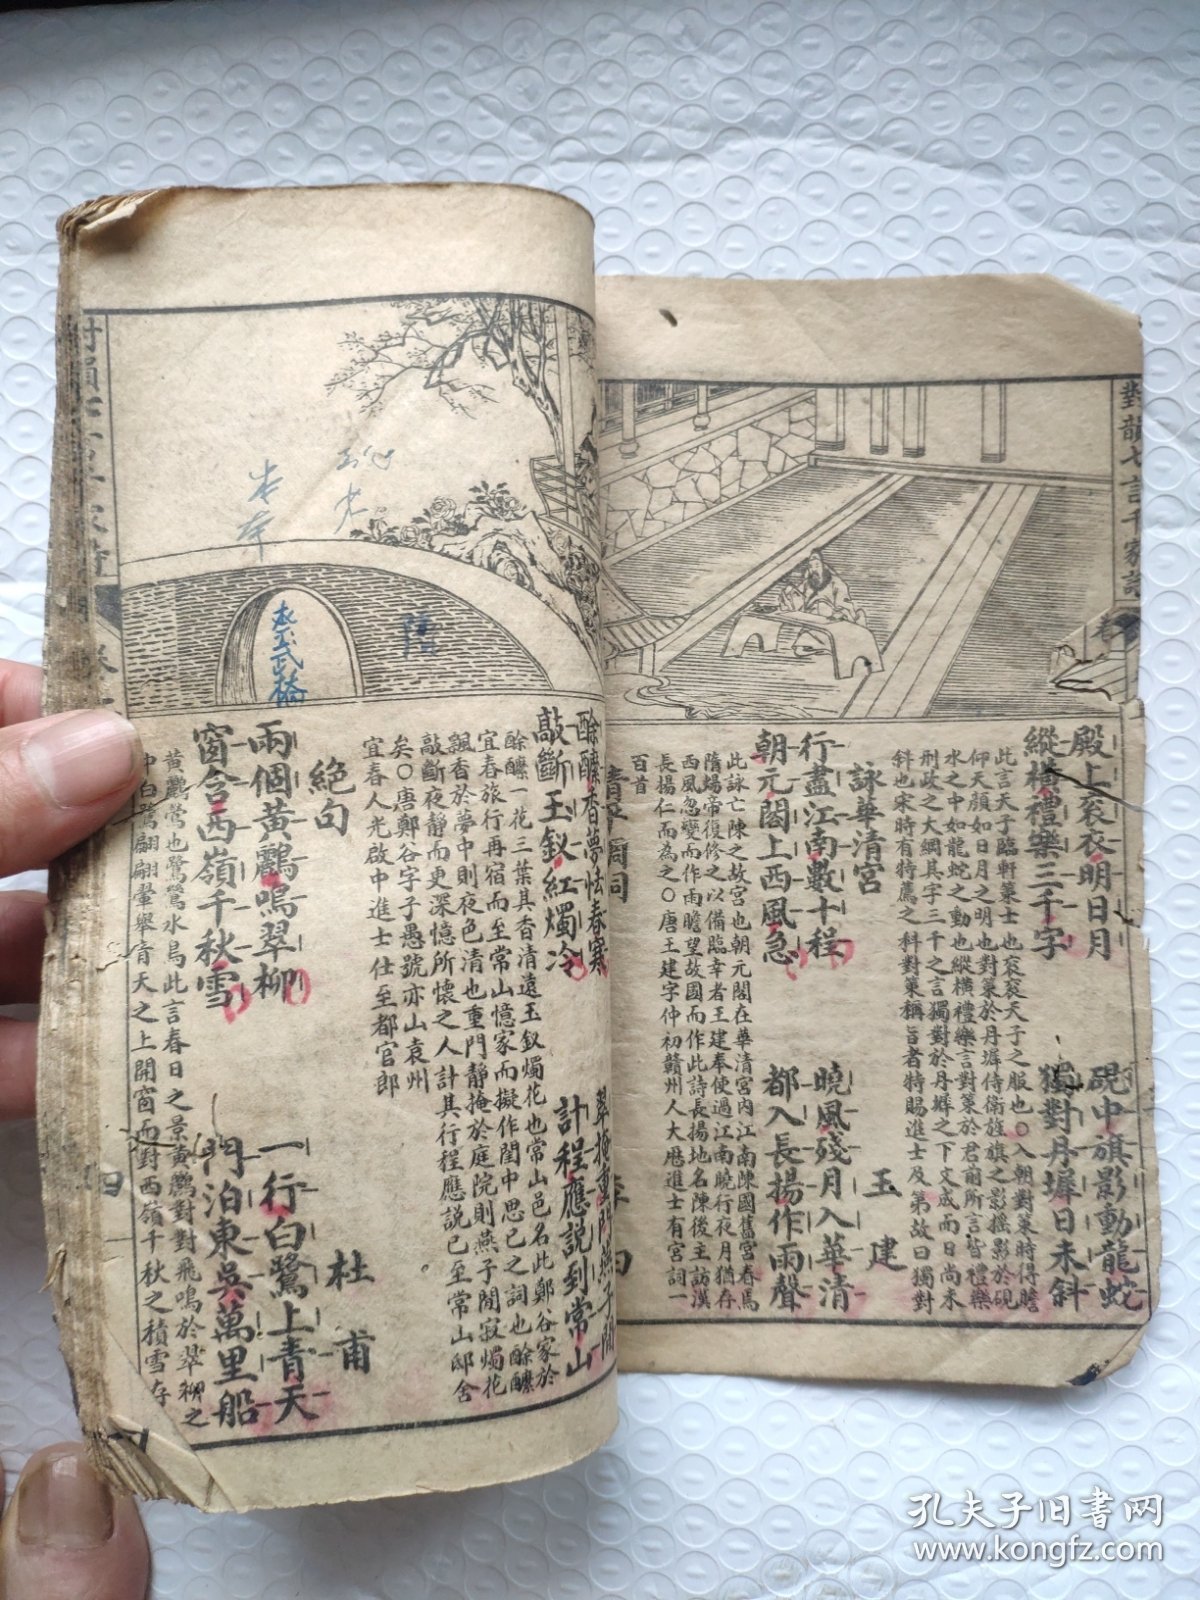 對韻七言千家詩
殿上袞衣明日月
硯中旗影動龍蛇
縱橫禮樂三千字
獨對丹墀日未斜
此言天子臨軒策士也袞袞天子之服也〇入朝對策時得瞻
仰天顏如日月之明也對策於丹墀侍衛旌旗之影搖影於硯
水之中如龍蛇之動也縱橫禮樂言對策於君前所言皆禮樂
刑政之大綱其字三千之言獨對於丹墀之下文成而日尚未
斜也宋時有特薦之科對策稱旨者特賜進士及第故曰獨對
詠華清宮
王建
行盡江南數十程
曉風殘月入華清
朝元閣上西風急
都入長揚作雨聲
此詠亡陳之故宮也朝元閣在華清宮內江南陳國舊宮春馬
隋煬帝復修之以備臨幸者王建奉使過江南曉行夜月猶存
西風忽變而作雨瞻望故國而作此詩長揚地名陳後主訪漢
長揚仁而為之〇唐王建字仲初贛州人大厯進士有宮詞一
百首
酴醾香夢怯春寒
翠掩重門燕子閒
敲斷玉釵紅燭冷
計程應說到常山
酴醾一花三葉其香清遠玉釵燭花也常山邑名此鄭谷家於
宜春旅行再宿而至常山憶家而擬作閨中思已之詞也酴醾
飄香於夢中則夜色清也重門靜掩於庭院則燕子閒寂燭花
敲斷夜靜而更深憶所懷之人計其行程應說已至常山邸舍
矣〇唐鄭谷字子愚號亦山袁州
宜春人光啟中進士仕至都官郎
絕句
杜甫
兩個黃鸝鳴翠柳
一行白鷺上青天
窗含西嶺千秋雪
門泊東吳萬里船
黃鸝鶯也鷺鷥水鳥此言春日之景黃鸝對對飛鳴於翠柳之
中白鷺翩翩輩舉青天之上開窗而對西嶺千秋之積雪存
四
孔夫子旧书网
www.kongfz.com